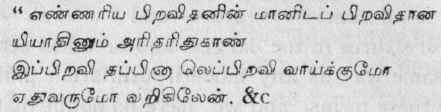 “ எண்ணரிய பிறவிதனின் மானிடப் பிறவிதான
யியாதினும் அரிதரிதுகாண்
இப்பிறவி தப்பினா லெப்பிறவி வாய்க்குமோ
ஏதுவருமோ வறிகிலேன். &c